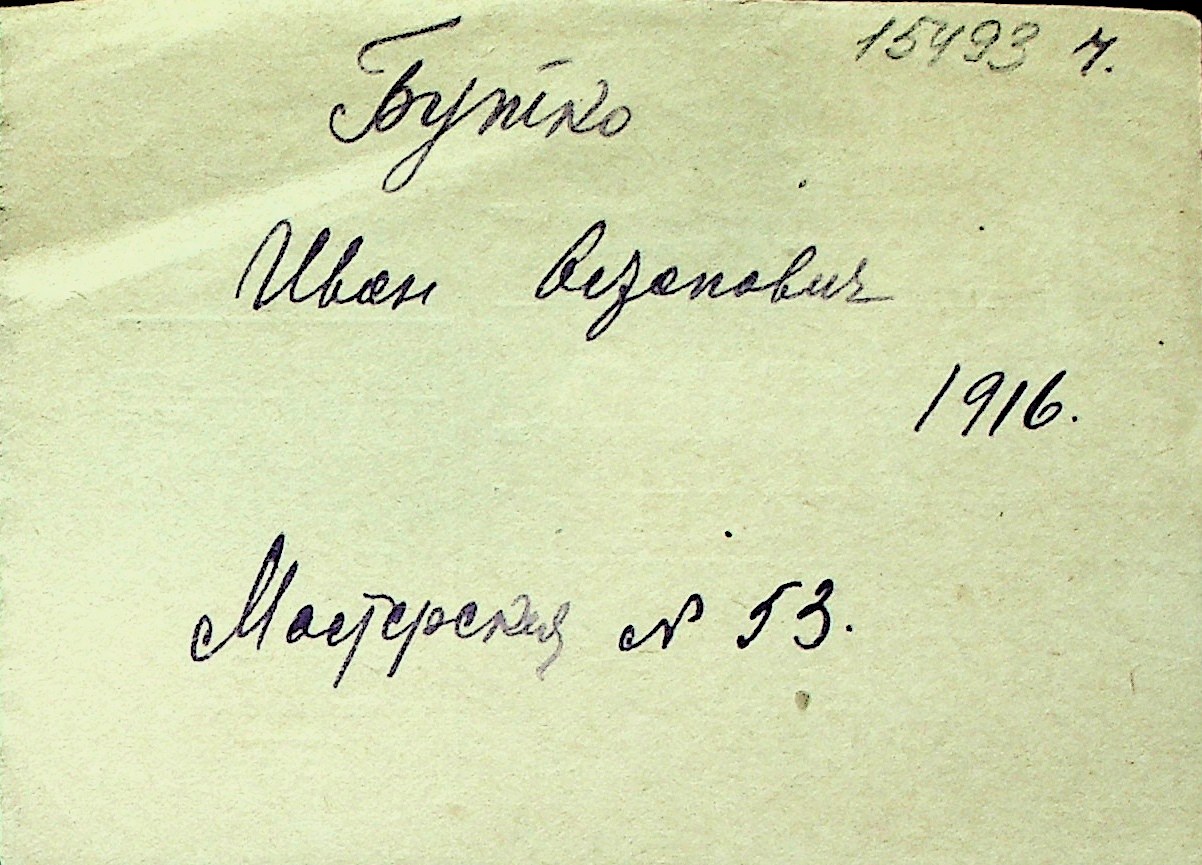 15493 ч.
Бутко
Иван
1916.
Мастерская № 53.